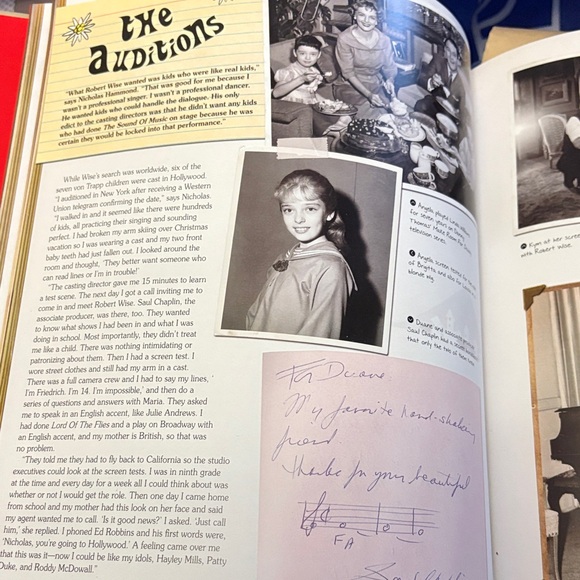 THE
AUDITIONS
"What Robert Wise wanted was kids who were like real kids,"
says Nicholas Hammond. "That was good for me because I
wasn't a professional singer. I wasn't a professional dancer.
He wanted kids who could handle the dialogue. His only
edict to the casting directors was that he didn't want any kids
who had done The Sound Of Music on stage because he was
certain they would be locked into that performance."
While Wise's search was worldwide, six of the
seven von Trapp children were cast in Hollywood.
"I auditioned in New York after receiving a Western
Union telegram confirming the date," says Nicholas.
"I walked in and it seemed like there were hundreds
of kids, all practicing their singing and sounding
perfect. I had broken my arm skiing over Christmas
vacation so I was wearing a cast and my two front
baby teeth had just fallen out. I looked around the
room and thought, 'They better want someone who
can read lines or I'm in trouble!'
"The casting director gave me 15 minutes to learn
a test scene. The next day I got a call inviting me to
come in and meet Robert Wise. Saul Chaplin, the
associate producer, was there, too. They wanted
to know what shows I had been in and what I was
doing in school. Most importantly, they didn't treat
me like a child. There was nothing intimidating or
patronizing about them. Then I had a screen test. I
wore street clothes and still had my arm in a cast.
There was a full camera crew and I had to say my lines,
'I'm Friedrich. I'm 14. I'm impossible,' and then do a
series of questions and answers with Maria. They asked
me to speak in an English accent, like Julie Andrews. I
had done Lord Of The Flies and a play on Broadway with
an English accent, and my mother is British, so that was
no problem.
"They told me they had to fly back to California so the studio
executives could look at the screen tests. I was in ninth grade
at the time and every day for a week all I could think about was
whether or not I would get the role. Then one day I came home
from school and my mother had this look on her face and said
my agent wanted me to call. 'Is it good news?' I asked. 'Just call
him,' she replied. I phoned Ed Robbins and his first words were,
'Nicholas, you're going to Hollywood.' A feeling came over me
that this was it—now I could be like my idols, Hayley Mills, Patty
Duke, and Roddy McDowall."
Angela played Linda
for seven years on
Thomas' Make Room For
television series.
Angela screen
of Brigitta and
blonde wig.
Duane and
Saul Chaplin had a
that only the two of
Kym at her screen
with Robert Wise.
For Duane
My favorite hand-shaking
friend
Thanks for your beautiful
FA